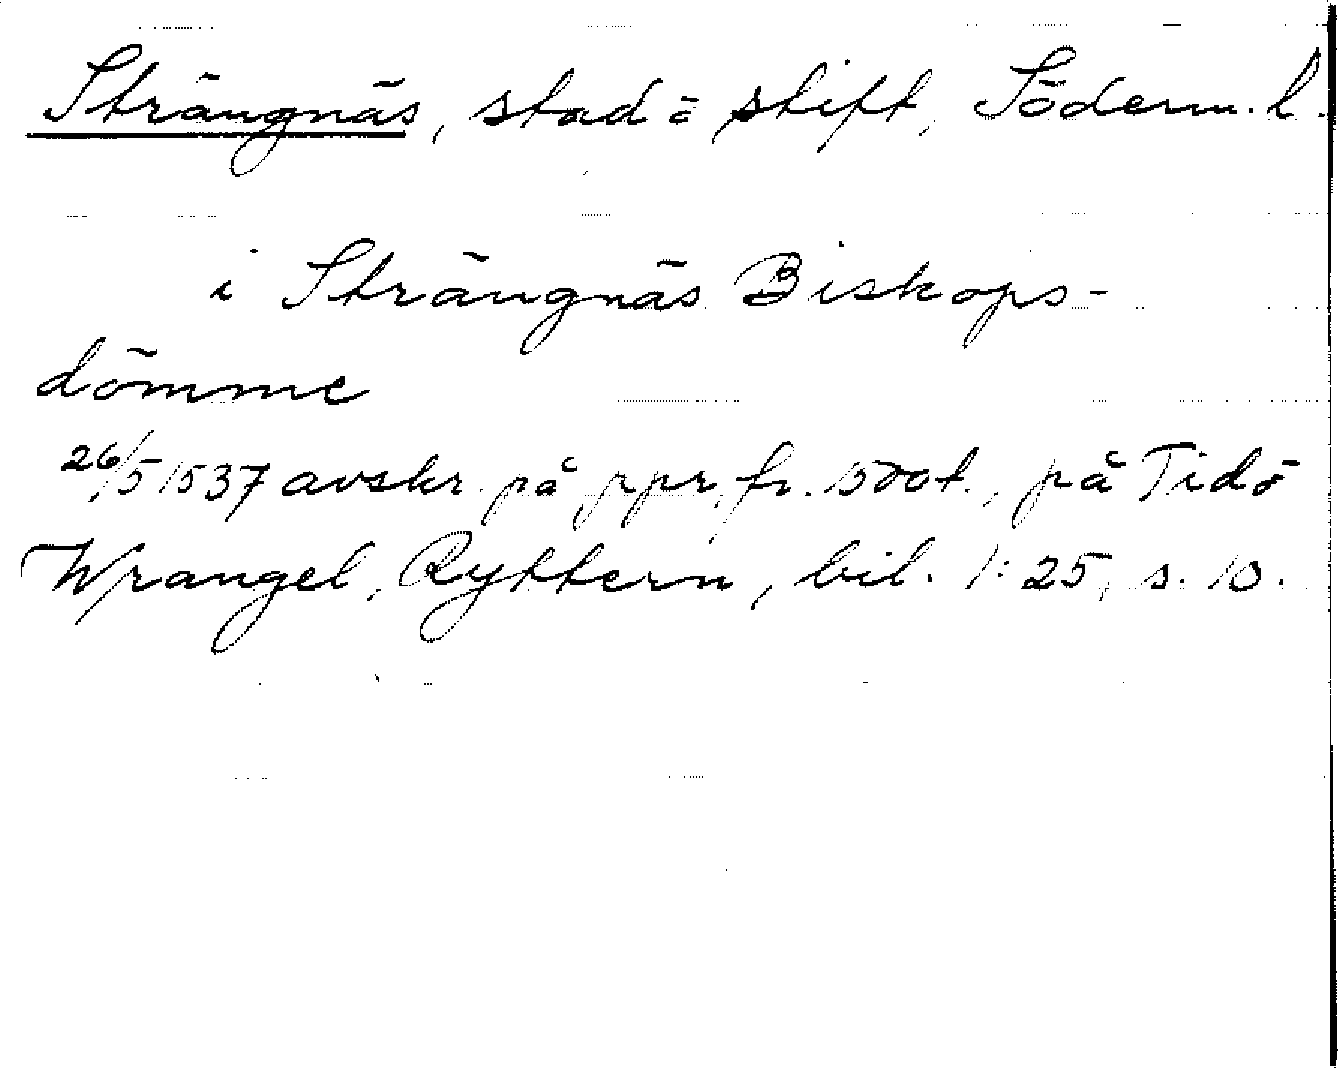 Strängnäs, stad o. stift, Söderm. l.
i Strängnäs Biskops-
dömme
26/5 1537 avskr. på ppr, fr. 1500t., på Tidö
Wrangel, Ryttern, bil. 1:25, s. 10.